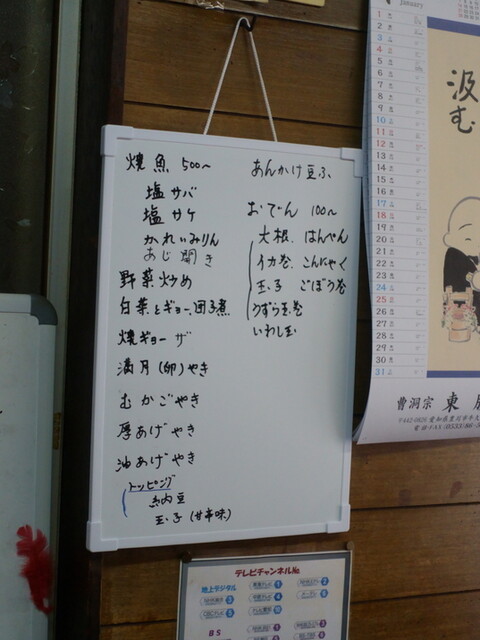 焼魚 500〜
塩サバ
塩サケ
かれいみりん
あじ開き
野菜炒め
白菜とギョー団子煮
焼ギョーザ
満月(卵)やき
むかごやき
厚あげやき
油あげやき
トッピング
納豆
玉子(甘辛味)
あんかけ豆ふ
おでん 100〜
大根 はんぺん
イカ巻 こんにゃく
玉子 ごぼう巻
うずら玉巻
いわし玉
January
1
2
3
4
5
6
7
8
9
10
11
12
13
14
15
16
17
18
19
20
21
22
23
24
25
26
27
28
29
30
31
汲む
曹洞宗 東
テレビチャンネルNo.
地上デジタル
BS